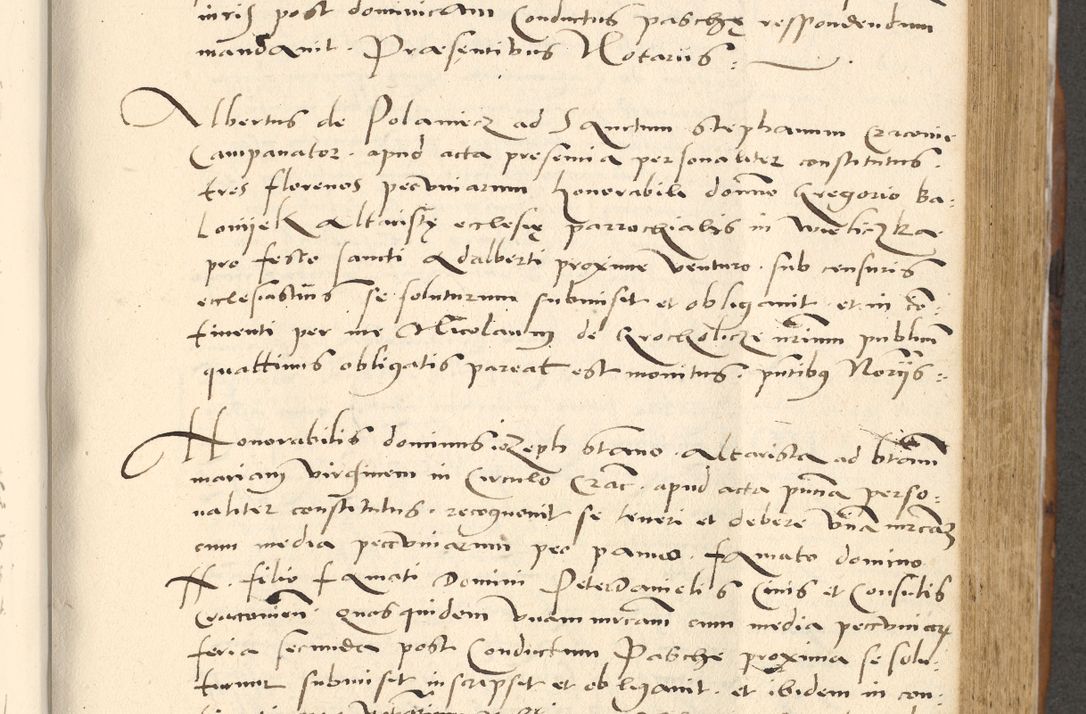 iuris post dominicam Conductus paschę respondendum
mandavit. Præsentibus Notariis.
Albertus de Polaniecz ad Sanctum Stephanum Cracovię
Campanator. apud acta presentia personaliter constitutus.
tres florenos pecuniarum honorabili domino Gregorio Ka-
lonijek altaristę ecclesię parrochialis in Wieliczka
pro festo sancti Adalberti proxime venturo. sub censuris
ecclesiasticis se soluturum submisit et obligavit. et in con-
tinenti per me Nicolaum de Grocholicze notarium publicum
quattinus obligatis pareat est monitus. pntibus Norijs.
Honorabilis dominus iozeph Stano. altarista ad btam
mariam virginem in Circulo Crac. apud acta pntia perso-
naliter constitutus. recognovit se teneri et debere unam mrcam
cum media pecuniarum pro panno. famato domino
N. filio famati Domini Peter Danielis Civis et Consulis
Cracovien. quas quidem unam mrcam cum media pecuniarum
feria secunda post Conductum Pasche proxima se solu-
turum submisit inscripsit et obligavit. et ibidem in con-